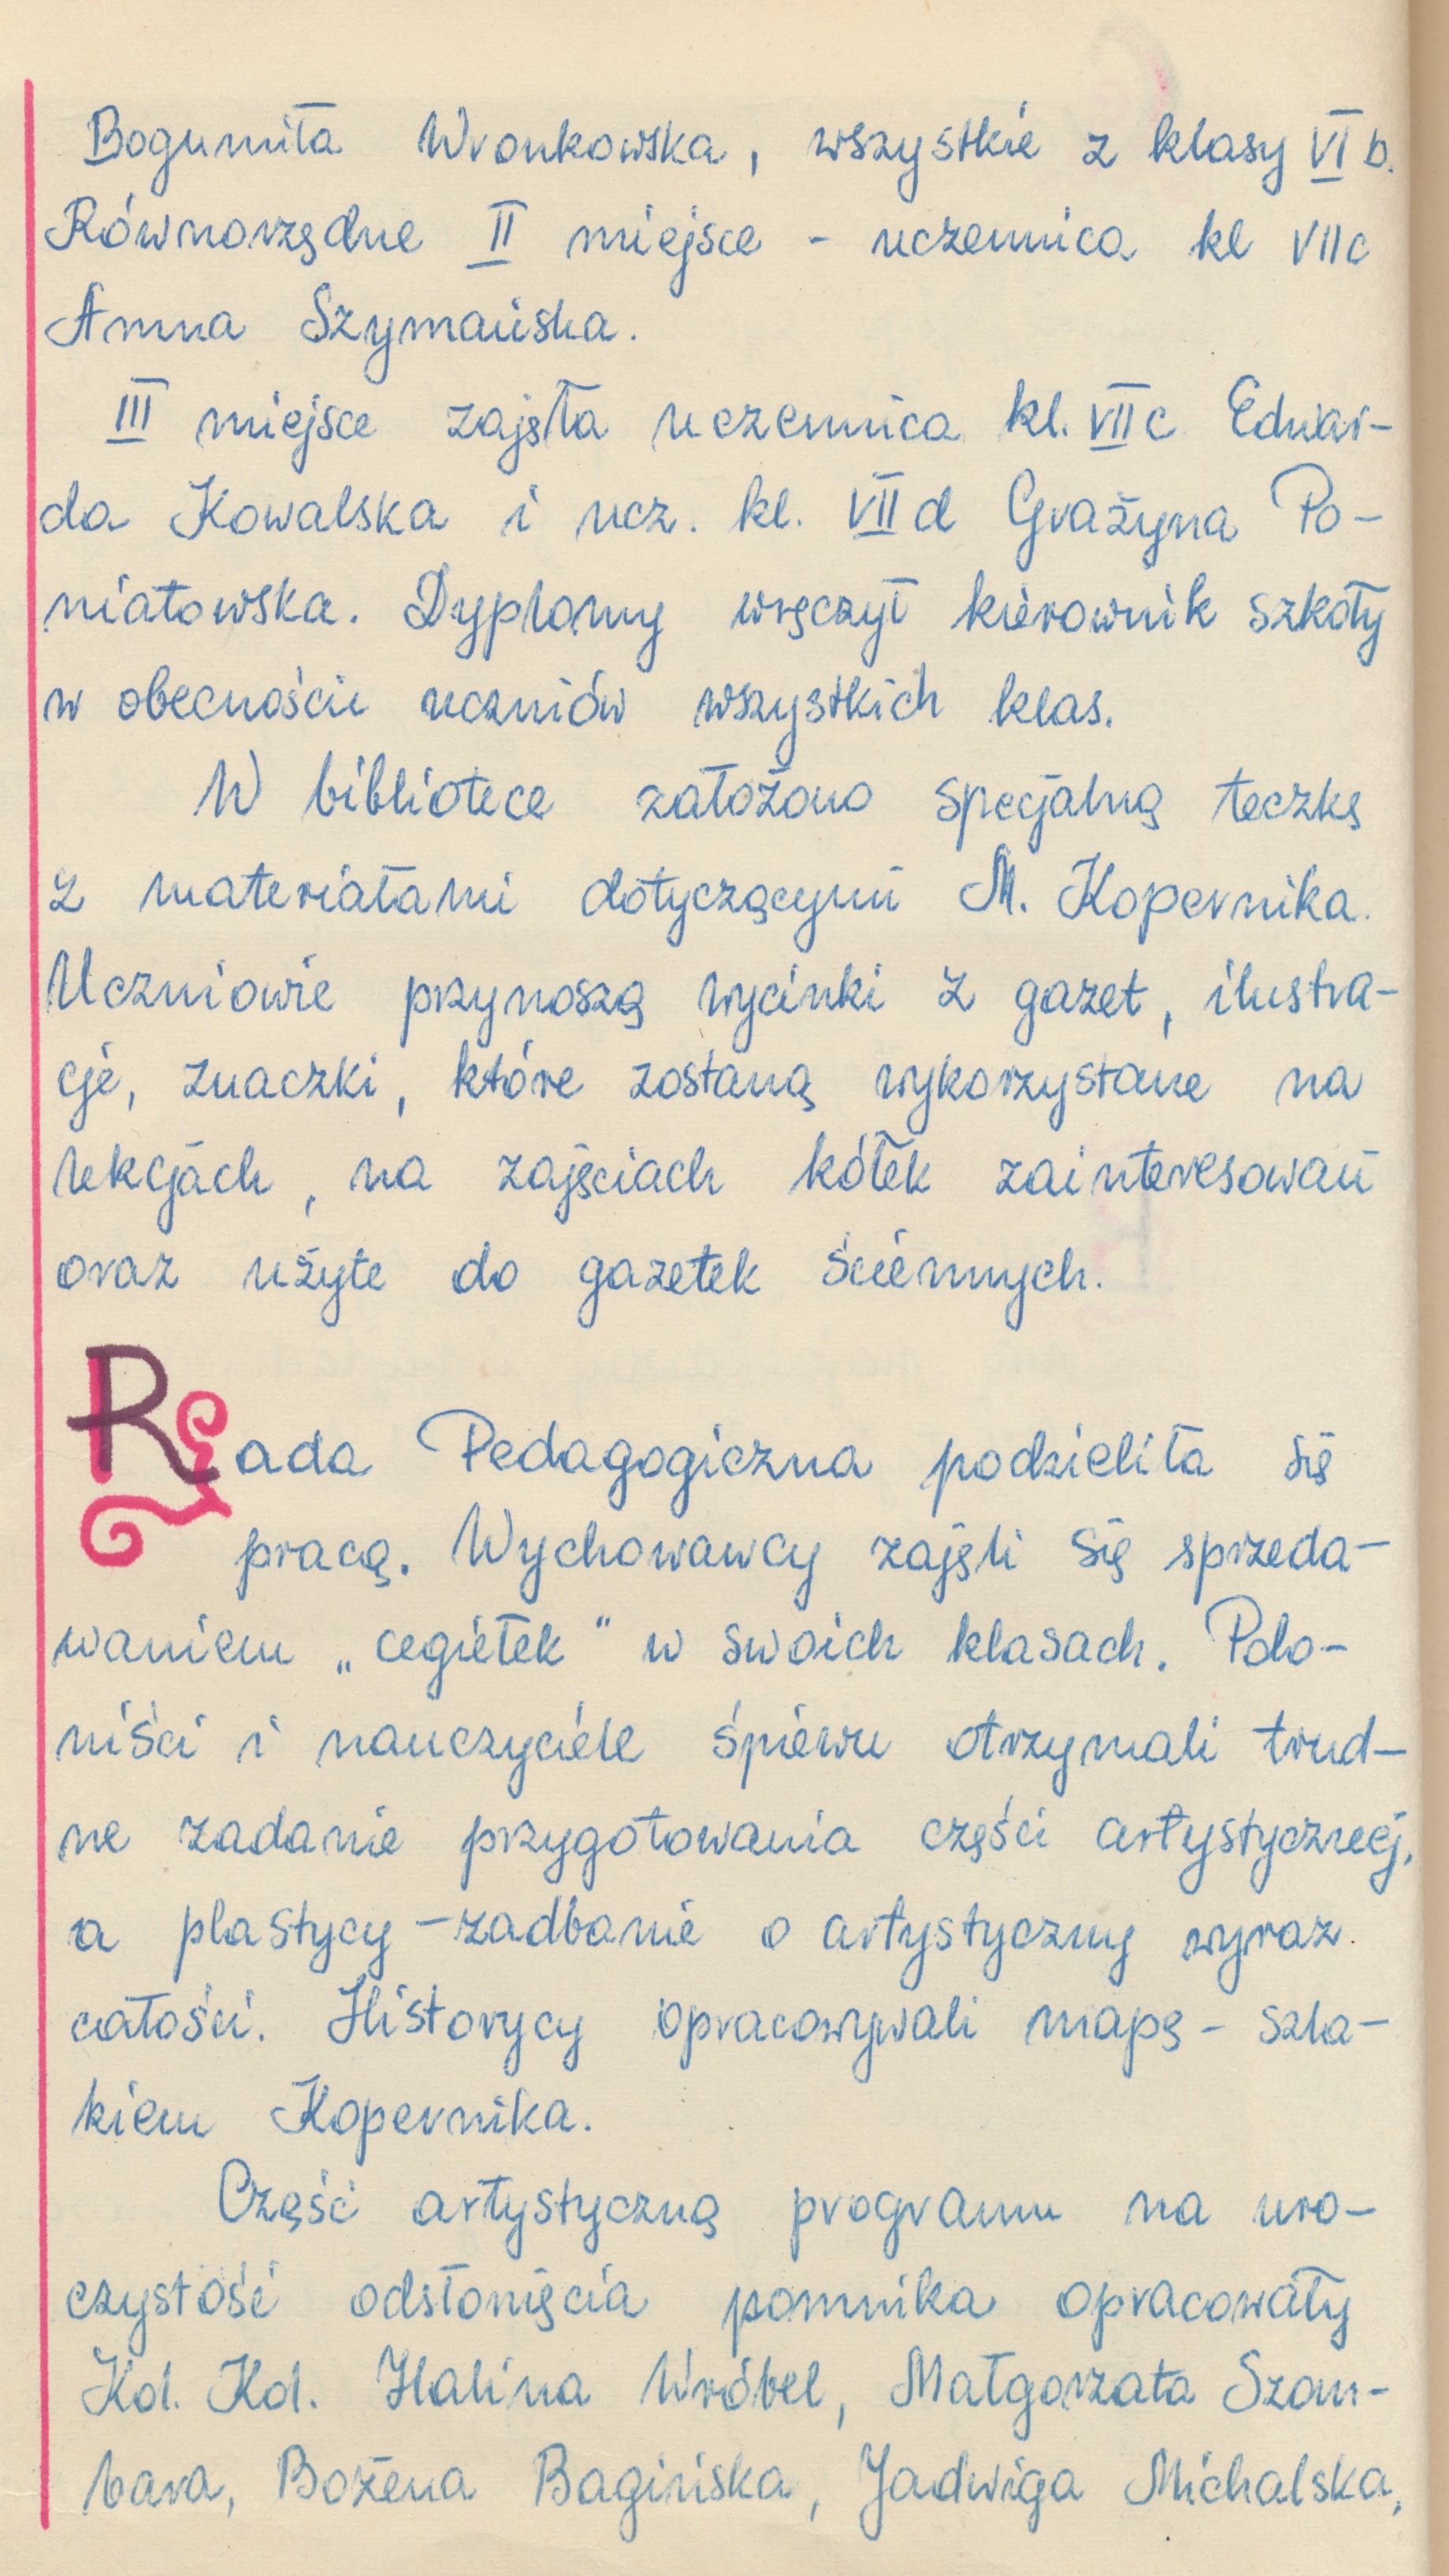 Bogumiła Wronkowska, wszystkie z klasy VI b.
Równorzędne II miejsce - uczennica kl VII c
Anna Szymańska.
III miejsce zajęła uczennica kl. VII c Edwar-
da Kowalska i ucz. kl. VII d Grażyna Po-
niatowska. Dyplomy wręczył kierownik szkoły
w obecności uczniów wszystkich klas.
W bibliotece założono specjalną teczkę
z materiałami dotyczącymi M. Kopernika.
Uczniowie przynoszą wycinki z gazet, ilustra-
cje, znaczki, które zostaną wykorzystane na
lekcjach, na zajęciach kółek zainteresowań
oraz użyte do gazetek ściennych.
Rada Pedagogiczna podzieliła się
pracą. Wychowawcy zajęli się sprzeda-
waniem „cegiełek" w swoich klasach. Polo-
niści i nauczyciele śpiewu otrzymali trud-
ne zadanie przygotowania części artystycznej,
a plastycy - zadbanie o artystyczny wyraz
całości. Historycy opracowywali mapę - szla-
kiem Kopernika.
Część artystyczną programu na uro-
czystość odsłonięcia pomnika opracowały
Kol. Kol. Halina Wróbel, Małgorzata Szam-
bara, Bożena Bagińska, Jadwiga Michalska,